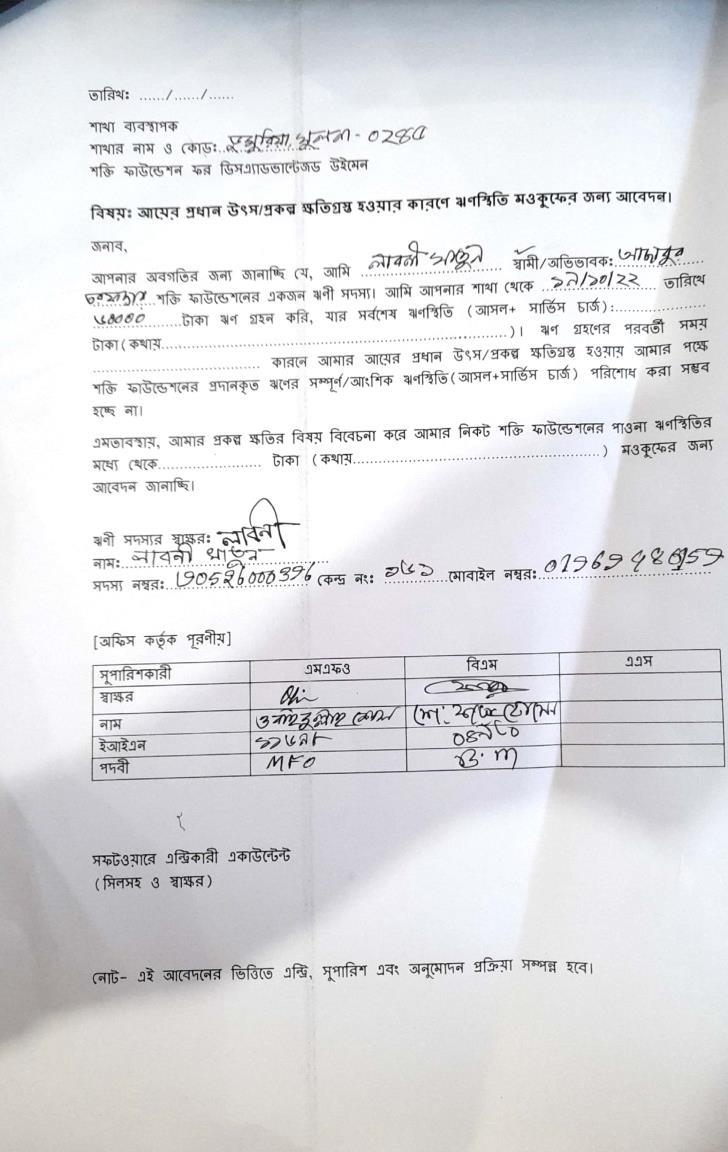 তারিখঃ ....../....../......
শাখা ব্যবস্থাপক
শাখার নাম ও কোডঃ ডুমুরিয়া, খুলনা-
শক্তি ফাউন্ডেশন ফর ডিসএ্যাডভান্টেজড উইমেন
বিষয়ঃ আয়ের প্রধান উৎস/প্রকল্প ক্ষতিগ্রস্থ হওয়ার কারণে ঋণস্থিতি মওকুফের জন্য আবেদন।
জনাব,
আপনার অবগতির জন্য জানাচ্ছি যে, আমি লাবনী খাতুন স্বামী/অভিভাবকঃ
শক্তি ফাউন্ডেশনের একজন ঋনী সদস্য। আমি আপনার শাখা থেকে তারিখে
টাকা ঋণ গ্রহন করি, যার সর্বশেষ ঋণস্থিতি (আসল+ সার্ভিস চার্জ):....................
টাকা(কথায়............................................................)। ঋণ গ্রহণের পরবর্তী সময়
........................................ কারনে আমার আয়ের প্রধান উৎস/প্রকল্প ক্ষতিগ্রস্থ হওয়ায় আমার পক্ষে
শক্তি ফাউন্ডেশনের প্রদানকৃত ঋণের সম্পূর্ণ/আংশিক ঋণস্থিতি(আসল+সার্ভিস চার্জ) পরিশোধ করা সম্ভব
হচ্ছে না।
এমতাবস্থায়, আমার প্রকল্প ক্ষতির বিষয় বিবেচনা করে আমার নিকট শক্তি ফাউন্ডেশনের পাওনা ঋণস্থিতির
মধ্যে থেকে........................ টাকা (কথায়..........................................) মওকুফের জন্য
আবেদন জানাচ্ছি।
ঋনী সদস্যর স্বাক্ষরঃ লাবনী
নামঃ লাবনী খাতুন
সদস্য নম্বরঃ কেন্দ্র নং: মোবাইল নম্বরঃ
[অফিস কর্তৃক পূরনীয়]
সুপারিশকারী এমএফও বিএম এএস
স্বাক্ষর
নাম
ইআইএন
পদবী MFO B.M
সফটওয়ারে এন্ট্রিকারী একাউন্টেন্ট
(সিলসহ ও স্বাক্ষর)
নোট- এই আবেদনের ভিত্তিতে এন্ট্রি, সুপারিশ এবং অনুমোদন প্রক্রিয়া সম্পন্ন হবে।